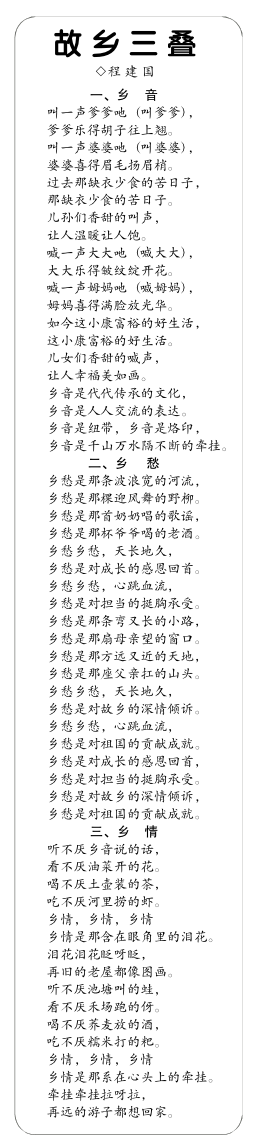 故乡三叠
◇程建国
一、乡 音
叫一声爹爹吔（叫爹爹），
爹爹乐得胡子往上翘。
叫一声婆婆吔（叫婆婆），
婆婆喜得眉毛扬眉梢。
过去那缺衣少食的苦日子，
那缺衣少食的苦日子。
儿孙们香甜的叫声，
让人温暖让人饱。
喊一声大大吔（喊大大），
大大乐得皱纹绽开花。
喊一声姆妈吔（喊姆妈），
姆妈喜得满脸放光华。
如今这小康富裕的好生活，
这小康富裕的好生活。
儿女们香甜的喊声，
让人幸福美如画。
乡音是代代传承的文化，
乡音是人人交流的表达。
乡音是纽带，乡音是烙印，
乡音是千山万水隔不断的牵挂。
二、乡 愁
乡愁是那条波浪宽的河流，
乡愁是那棵迎风舞的野柳。
乡愁是那首奶奶唱的歌谣，
乡愁是那杯爷爷喝的老酒。
乡愁乡愁，天长地久，
乡愁是对成长的感恩回首。
乡愁乡愁，心跳血流，
乡愁是对担当的挺胸承受。
乡愁是那条弯又长的小路，
乡愁是那扇母亲望的窗口。
乡愁是那方远又近的天地，
乡愁是那座父亲扛的山头。
乡愁乡愁，天长地久，
乡愁是对故乡的深情倾诉。
乡愁乡愁，心跳血流，
乡愁是对祖国的贡献成就。
乡愁是对成长的感恩回首，
乡愁是对担当的挺胸承受。
乡愁是对故乡的深情倾诉，
乡愁是对祖国的贡献成就。
三、乡 情
听不厌乡音说的话，
看不厌油菜开的花。
喝不厌土壶装的茶，
吃不厌河里捞的虾。
乡情，乡情，乡情
乡情是那含在眼角里的泪花。
泪花泪花眨呀眨，
再旧的老屋都像图画。
听不厌池塘叫的蛙，
看不厌禾场跑的伢。
喝不厌荞麦放的酒，
吃不厌糯米打的粑。
乡情，乡情，乡情
乡情是那系在心头上的牵挂。
牵挂牵挂拉呀拉，
再远的游子都想回家。